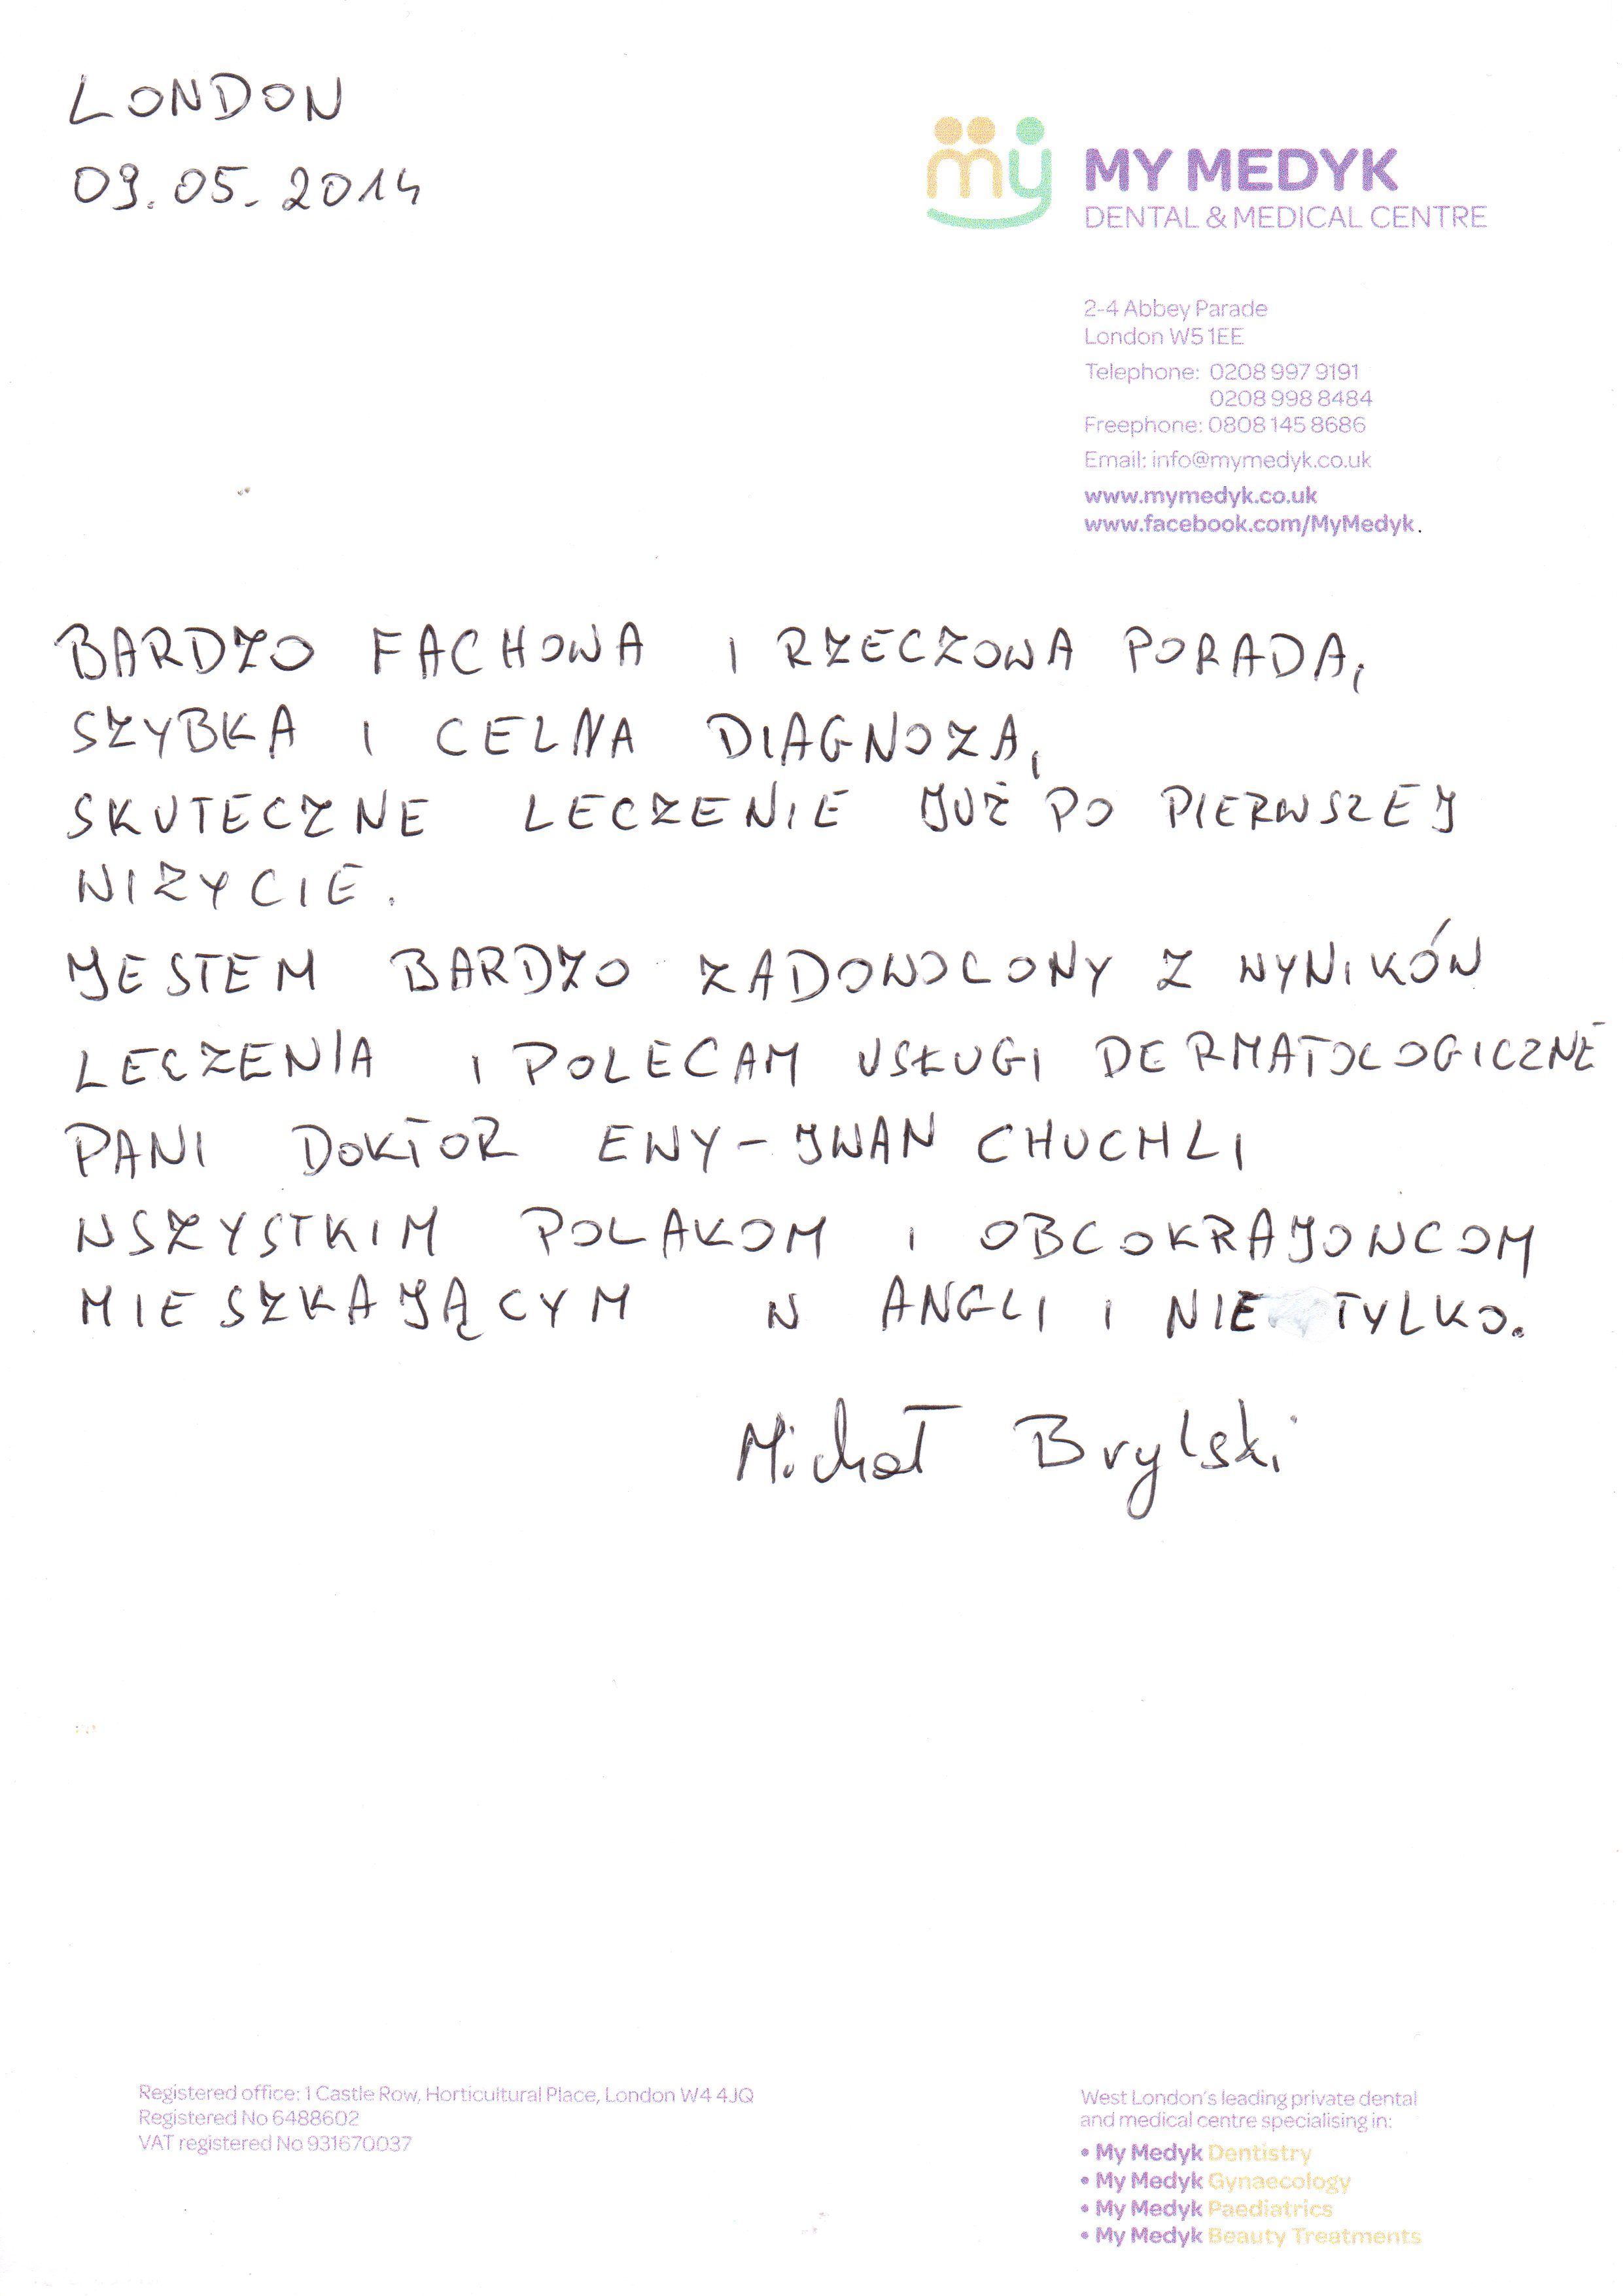 LONDON
09.05.2014
my
MY MEDYK
DENTAL & MEDICAL CENTRE
2-4 Abbey Parade
London W5 1EE
Telephone: 0208 997 9191
0208 998 8484
Freephone: 0808 145 8686
Email: info@mymedyk.co.uk
www.mymedyk.co.uk
www.facebook.com/MyMedyk.
BARDZO FACHOWA I RZECZOWA PORADA,
SZYBKA I CELNA DIAGNOZA,
SKUTECZNE LECZENIE JUŻ PO PIERWSZEJ
WIZYCIE.
JESTEM BARDZO ZADOWOLONY Z WYNIKÓW
LECZENIA I POLECAM USŁUGI DERMATOLOGICZNE
PANI DOKTOR EWY-IWAN CHUCHLI
WSZYSTKIM POLAKOM I OBCOKRAJOWCOM
MIESZKAJĄCYM W ANGLI I NIE TYLKO.
Michał Brylski
Registered office: 1 Castle Row, Horticultural Place, London W4 4JQ
Registered No 6488602
VAT registered No 931670037
West London's leading private dental
and medical centre specialising in:
• My Medyk Dentistry
• My Medyk Gynaecology
• My Medyk Paediatrics
• My Medyk Beauty Treatments